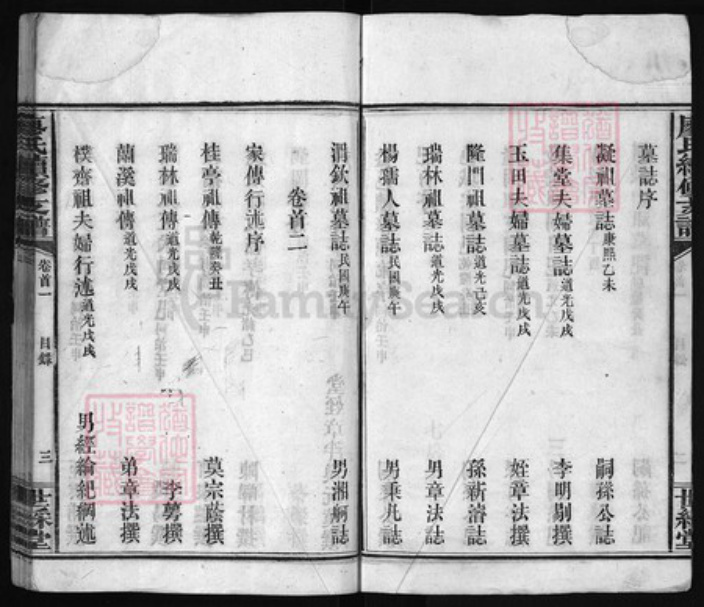 墓誌序
凝祖墓誌康熙乙未 嗣孫公誌
集堂夫婦墓誌道光戊戌 李明剔撰
玉田夫婦墓誌道光戊戌 姪章法撰
隆門祖墓誌道光己亥 孫新濬誌
瑞林祖墓誌道光戊戌 男章法誌
楊孺人墓誌民國庚午 男秉凡誌
渭欽祖墓誌民國庚午 男湘舸誌
卷首二
家傳行述序
桂亭祖傳乾隆癸丑 莫宗蔭撰
瑞林祖傳道光戊戌 李勞撰
蘭溪祖傳道光戊戌 弟章法撰
樸齋祖夫婦行述道光戊戌 男經綸紀綱述
廖氏續修支譜
卷首一
目錄
三
世綵堂
FamilySearch